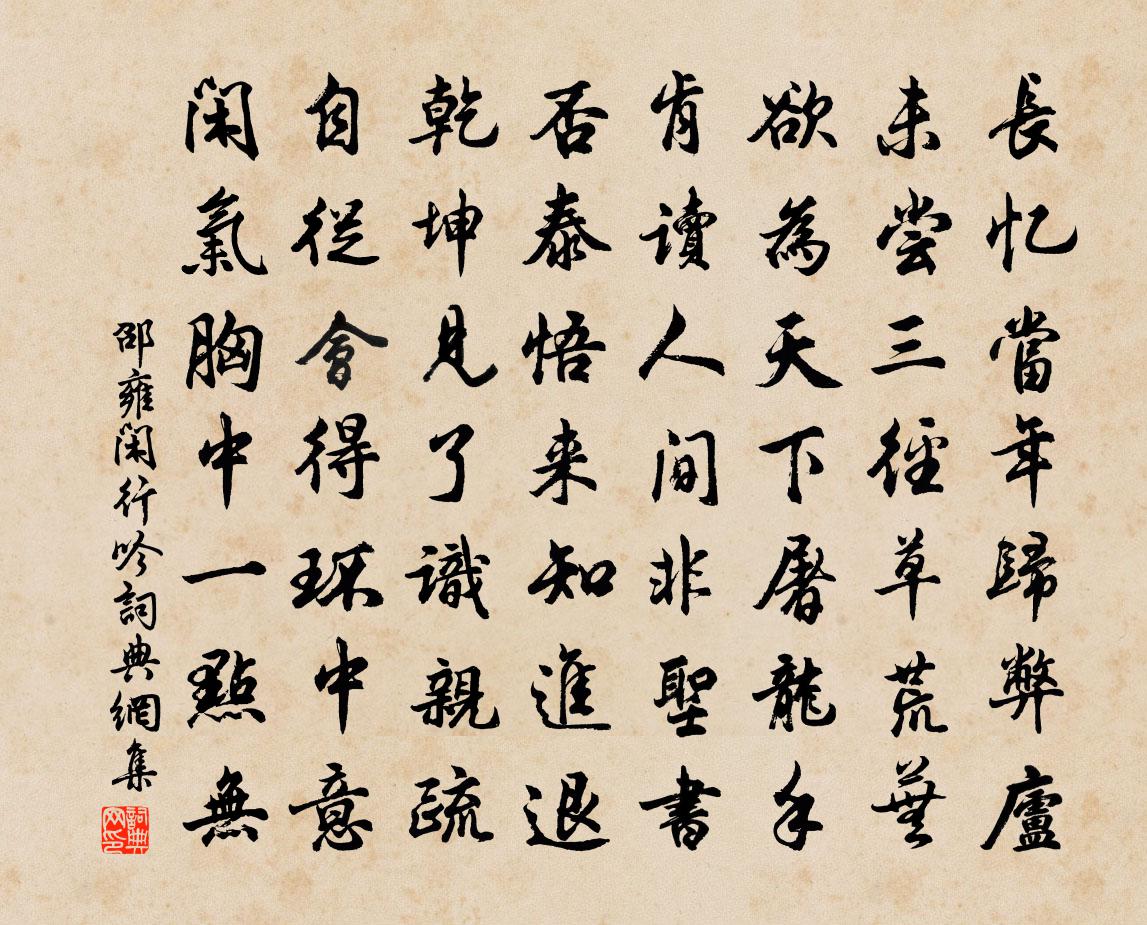 長忆當年歸弊廬
未嘗三徑草荒蕪
欲為天下屠龍手
肯讀人间非聖書
否泰悟来知進退
乾坤見了識親疏
自從會得環中意
闲氣胸中一點無
邵雍闲行吟詞典網集
詞典网印